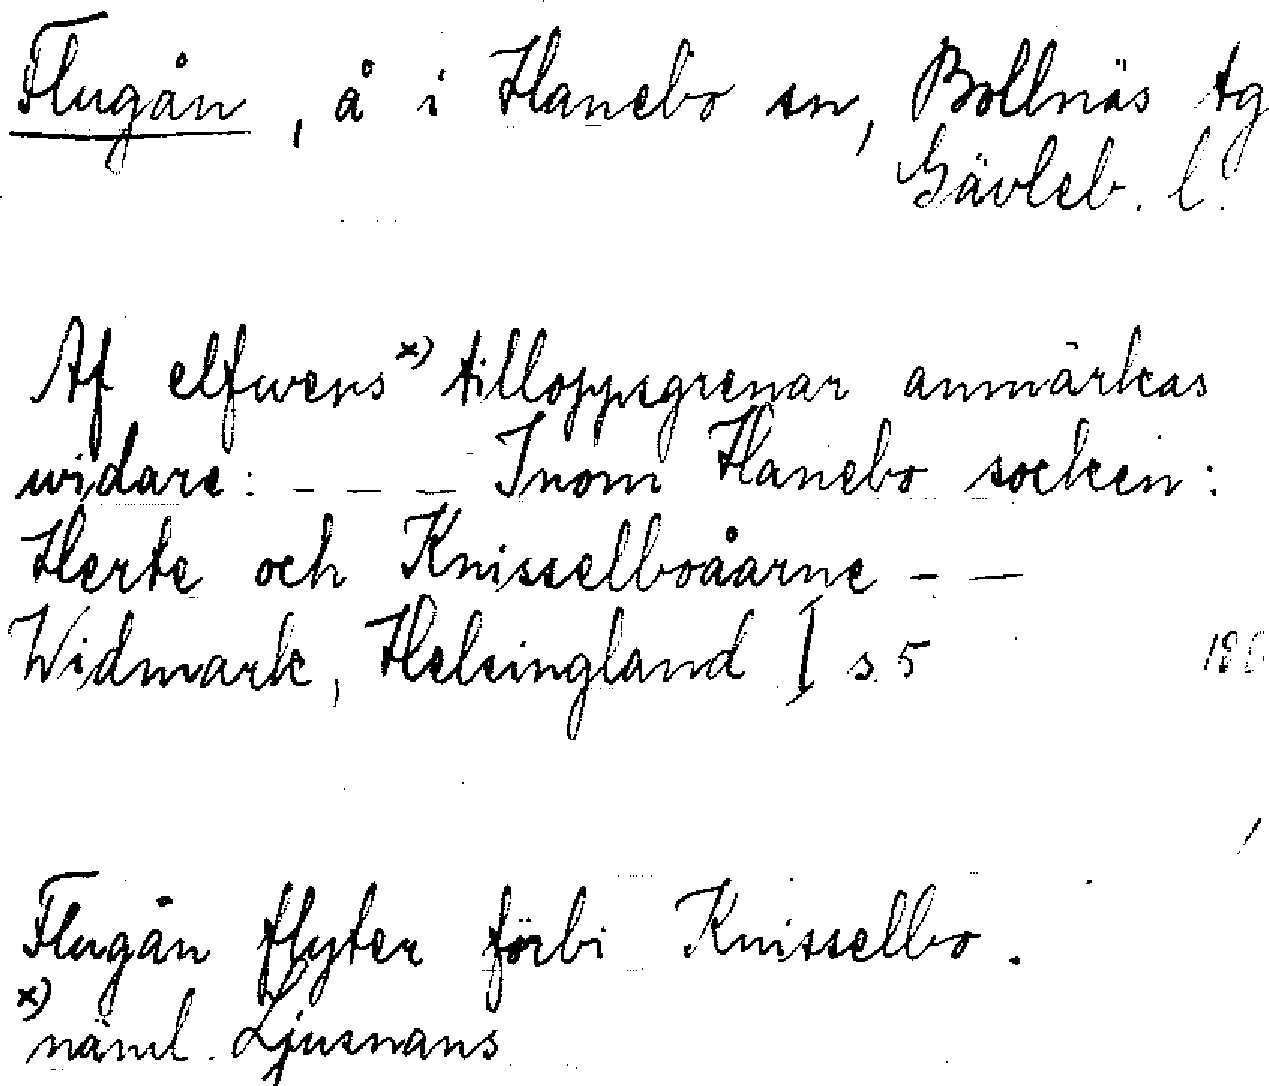 Flugån, å i Hanebo sn, Bollnäs tg
Gävleb. l.
Af elfwens x) tilloppsgrenar anmärkas
widare: _ _ _ Inom Hanebo socken:
Herte och Knisselboåarne _ _
Widmark, Helsingland I s 5
Flugån flyter förbi Knisselbo.
x)
näml. Ljusnans